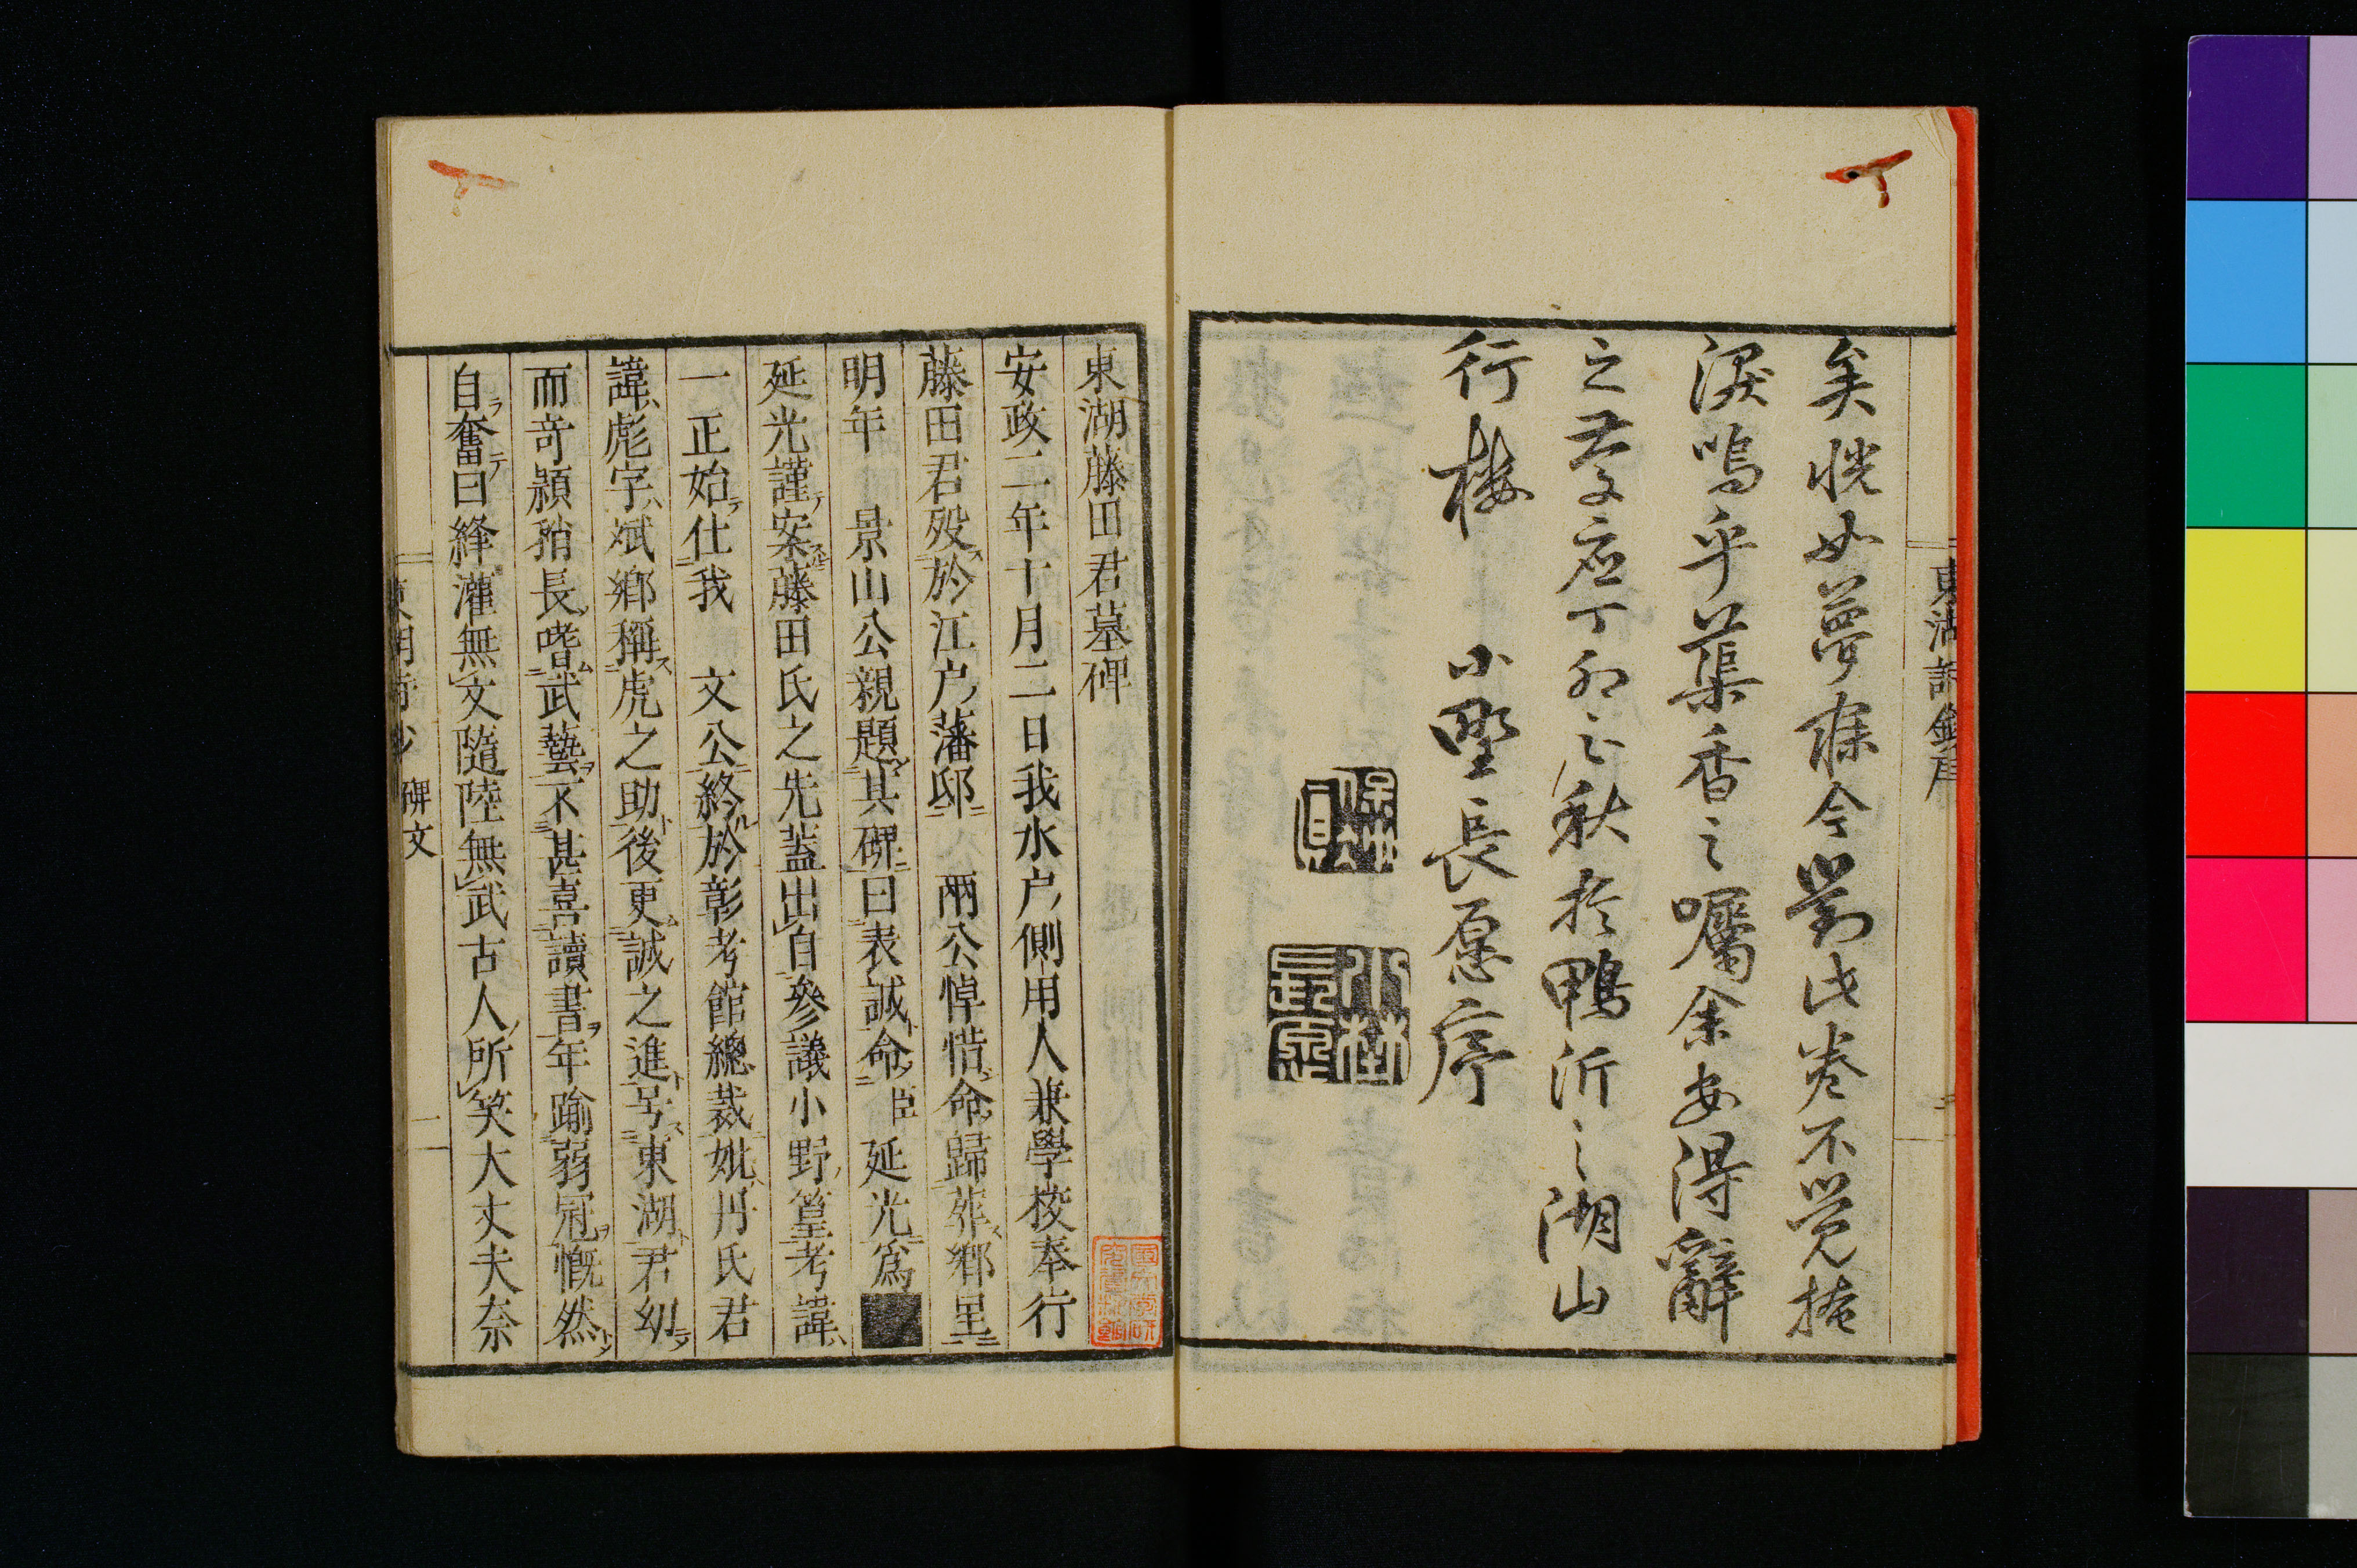 矣恍如夢寐今對此巻不覚掩
涙嗚乎葉香之囑余安得辭
之慶應丁卯之秋於鴨沂之湖山
行樓　小野長愿序
東湖藤田君墓碑
安政二年十月二日我水户側用人兼學校奉行
藤田君歿於江户藩邸　兩公悼惜命歸葬郷里
明年　景山公親題其碑曰表誠命臣延光爲■
延光謹案藤田氏之先蓋出自參議小野篁考諱
一正始仕我　文公終於彰考館總裁妣丹氏君
諱彪字斌郷稱虎之助後更誠之進号東湖君幼
而竒頴稍長嗜武藝不甚喜讀書年踰弱冠慨然
自奮曰絳灌無文隨陸無武古人所笑大丈夫奈
碑文